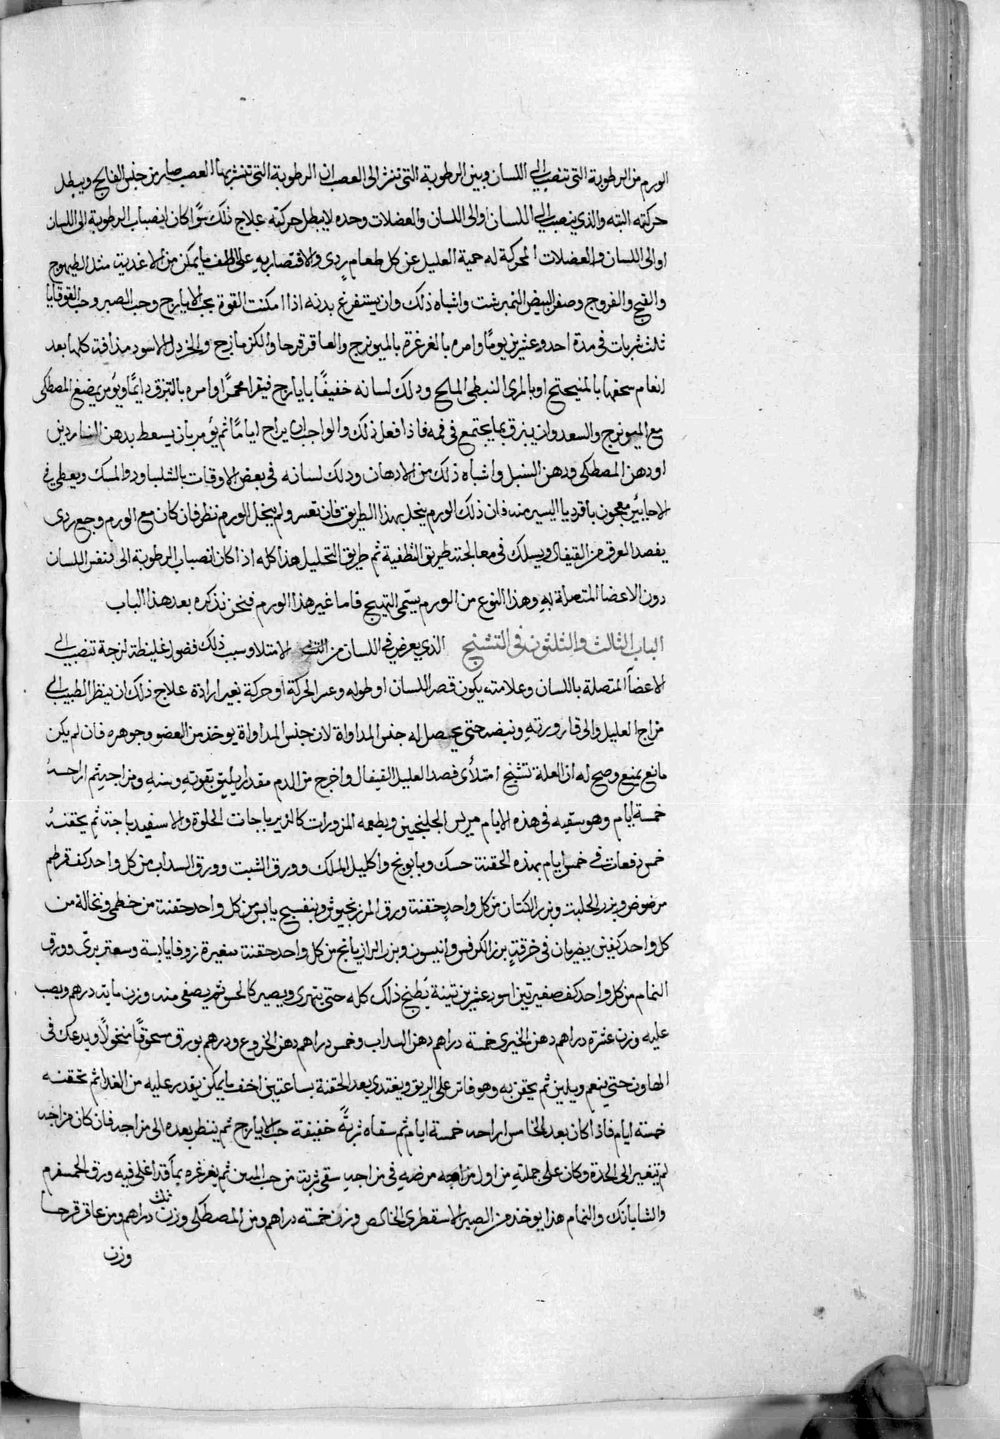 الورم من الرطوبة التى تنصب الى اللسان وبين الرطوبة التى تنثر الى العصب ان الرطوبة التى تنثربها العصب صار من جنس الفالج ويبطل
حركته البته والذى ينصب الى اللسان او الى اللسان والعضلات وحده لا يبطل حركته علاج ذلك سوًا كان انصباب الرطوبة الى اللسان
او الى اللسان والعضلات المحركة له حمية العليل عن كل طعام ردى والاقتصار به على الطف ما يمكن من الاغذية مثل الطيهوج
والقبج والفروج وصفر البيض النمبرشت واشباه ذلك وان يستفرغ بدنه اذا امكنت القوة بحب الايارج وحب الصبر وحب القوقايا
ثلث شربات فى مدة احد وعشرين يومًا وامره بالغرغرة بالميوبزج والعاقرقرحا والكزمازج والخردل الاسود مدافة كلها بعد
انعام سحقها بالمنيحتج او بالمرى النبطى المالح ودلك لسانه خفيفًا بايارج فيقرا مخمرًا وامره بالتبزق دايمًا ويؤمر بمضغ المصطكى
مع الميوبزج والسعد وان يبزق بما يجتمع فى فمه فاذا فعل ذلك والواجب ان يراح اياما ثم يؤمر بان يسعط بدهن الناردين
او دهن المصطكى ودهن السنبل واشباه ذلك من الادهان ودلك لسانه فى بعض الاوقات بالشلباود والمسك ويعطى فى
الاحايين معجون باقرديا اليسير منه فان ذلك الورم يتحلل بهذا الطريق فان تعسر ولم يتحلل الورم نظر فان كان مع الورم وجع ردى
يفصد العرق من القيفال ويسلك فى معالجته طريق التطفية ثم طريق التحليل هذا كله اذا كان انصباب الرطوبة الى نفس اللسان
دون الاعضا المتصلة به وهذا النوع من الورم يسمى التهيج فاما غير هذا الورم فنحن نذكره بعد هذا الباب
الباب الثالث والثلثون فى التشنج الذى يعرض فى اللسان من الامتلا وسبب ذلك فضول غليظة لزجة تنصب الى
الاعضاً المتصلة باللسان وعلامته يكون قصر اللسان او طوله وعسر الحركة او حركة بغير ارادة علاج ذلك ان ينظر الطبيب الى
مزاج العليل والى قارورته ونبضه حتى يحصل له جنس المداواة لان جنس المداواة يوخذ من العضو وجوهره فان لم يكن
مانع يمنع وصح له ان العلة تشنج امتلائى فصد العليل القيفال واخرج من الدم مقدار يليق بقوته وسنه ومزاجه ثم اراحه
خمسة ايام وهو سقيه فى هذه الايام مرس الجلنجبين ويطعمه المزورات كالزيرباجات الحلوة والاسفيدباجة ثم يحقنه
خمس دفعات فى خمس ايام بهذه الحقنة حسك وبابونج واكليل الملك وورق الشبت وورق السداب من كل واحد كف قرطم
مرضوض وبزر الحلبة وبزر الكتان من كل واحد حفنة ورق المرزنجوش وبنفسج يابس من كل واحد حفنة من خطمى ونخالة من
كل واحد كفين يصيران فى خرقة بزر الكرفس وانيسون وبزر الرازيانج من كل واحد حفنة صغيرة زوفا يابسة وسعتر برى وورق
النمام من كل واحد كف صغير تين اسود عشرين تينة يُطبخ ذلك كله حتى يتهرى ويصير كالحسو ثم يصفى منه وزن ماية درهم ويصب
عليه وزن عشرة دراهم دهن الخيرى خمسة دراهم دهن السداب وخمس دراهم دهن الخروع ودرهم بورق مسحوقًا منخولًا ويدعك فى
الهاون حتى ينعم ويلين ثم يحقن به وهو فاتر على الريق ويغتدى بعد الحقنة بساعتين اخف ما يمكن يقدر عليه من الغدا ثم يحقنه
خمسة ايام فاذا كان بعد الخامس اراحه خمسة ايام ثم سقاه شربةً خفيفة حب الايارج ثم ينظر بعده الى مزاجه فان كان مزاجه
لم تتغير الى الحدة وكان على جملته من اول مزاجه مرضه فى مزاجه سقى شربة من حب المنتن ثم يغرغره بمأ قد اغلى فيه ورق الحمسفرم
والشابانك والنمام هذا يوخذ من الصبر الاسقطرى الخالص وزن خمسة دراهم ومن المصطكى وزن ثلث دراهم ومن عاقرقرحا
وزن